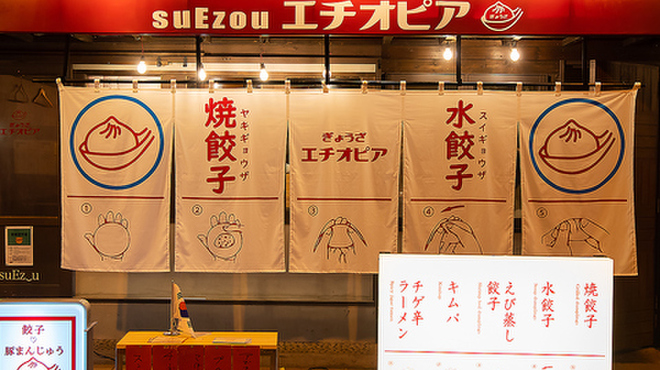 suEzou エチオピア
ぎょうざ
焼餃子
ヤキギョウザ
ぎょうざ
エチオピア
水餃子
スイギョウザ
①
②
③
④
⑤
エチオピア
suEz_u
餃子
豚まんじゅう
焼餃子
水餃子
えび蒸し
餃子
キムパ
チゲ辛
ラーメン